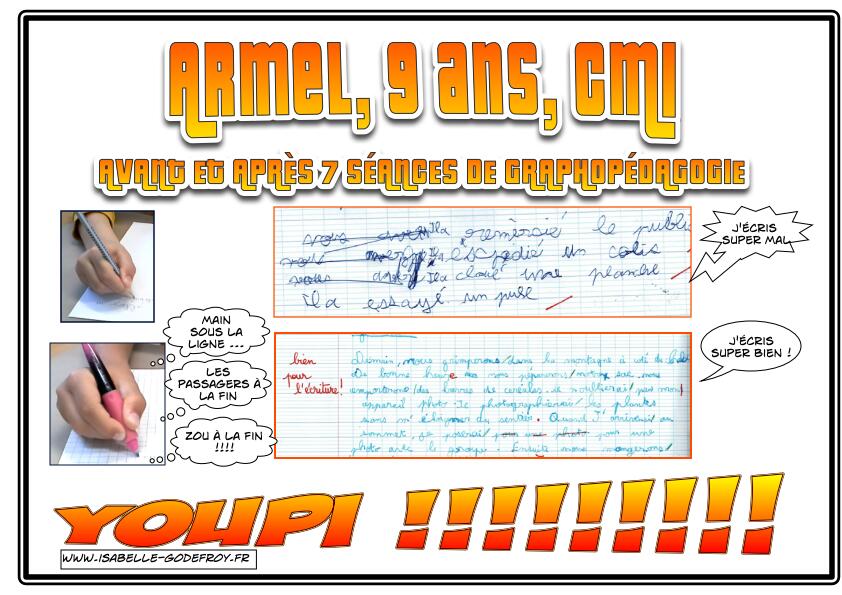 Armel, 9 ans, CM1
AVANT ET APRÈS 7 SÉANCES DE GRAPHOPÉDAGOGIE
vous Il a remèrcié le public
vous Il a escpadié un colis
vous Il a cloué une planche
Il a essayé un pull
J'ÉCRIS
SUPER MAL
MAIN
SOUS LA
LIGNE ...
LES
PASSAGERS À
LA FIN
ZOU À LA FIN
!!!!
bien
pour
l'écriture!
Demain, nous grimperons/dans la montagne à coté du
De bonne heure
emporterons/des barres de céréales.
appareil photo Je photographierai/les plantes
sans m'éloigner du sentier. Quand J'arriverai/au
sommet, je poserai/ pour une photo pour une
photo avec le groupe. Ensuite nous mangerons/
J'ÉCRIS
SUPER BIEN !
YOUPI !!!!!!!!!
WWW.ISABELLE-GODEFROY.FR